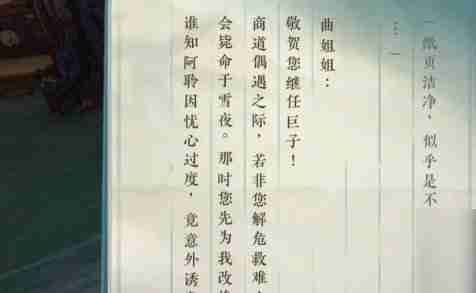 纸页洁净，似乎是不
……
曲姐姐：
敬贺您继任巨子！
商道偶遇之际，若非您解危救难，
会毙命于雪夜。那时您先为我改
谁知阿聆因忧心过度，竟意外诱